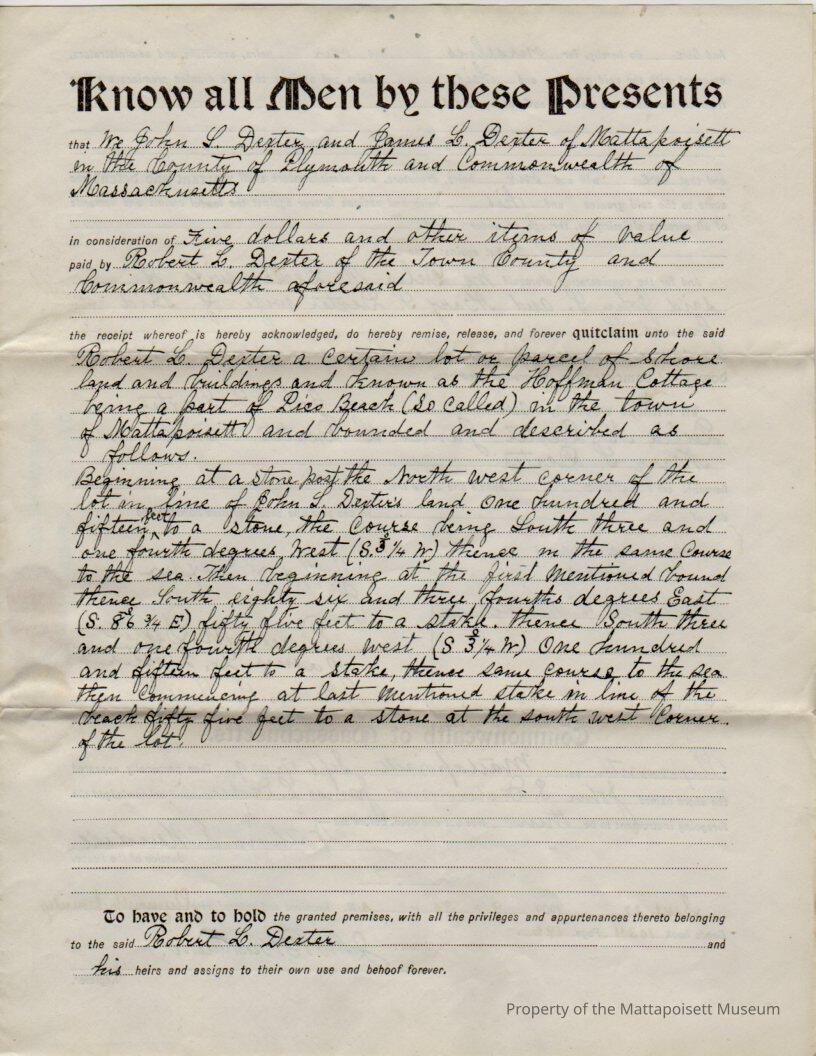 Know all Men by these Presents
that We John S. Dexter and James L. Dexter of Mattapoisett
in the County of Plymouth and Commonwealth of
Massachusetts
in consideration of Five dollars and other items of value
paid by Robert L. Dexter of the Town County and
Commonwealth aforesaid
the receipt whereof is hereby acknowledged, do hereby remise, release, and forever quitclaim unto the said
Robert L. Dexter a certain lot or parcel of shore
land and buildings and known as the Hoffman Cottage
being a part of Pico Beach (So called) in the town
of Mattapoisett and bounded and described as
follows.
Beginning at a stone post the North west corner of the
lot in line of John S. Dexter's land One hundred and
fifteen feet to a stone, the course being South three and
one fourth degrees, West (S. 3° 1/4 W) thence in the same Course
to the sea. Then beginning at the first mentioned bound
thence South eighty six and three fourths degrees East
(S. 86° 3/4 E) fifty five feet to a stake. thence South three
and one fourth degrees West (S 3° 1/4 W.) One hundred
and fifteen feet to a stake, thence same course to the sea
then Commencing at last mentioned stake in line of the
beach fifty five feet to a stone at the south west Corner.
of the lot.
To have and to hold the granted premises, with all the privileges and appurtenances thereto belonging
to the said Robert L. Dexter and
his heirs and assigns to their own use and behoof forever.
Property of the Mattapoisett Museum